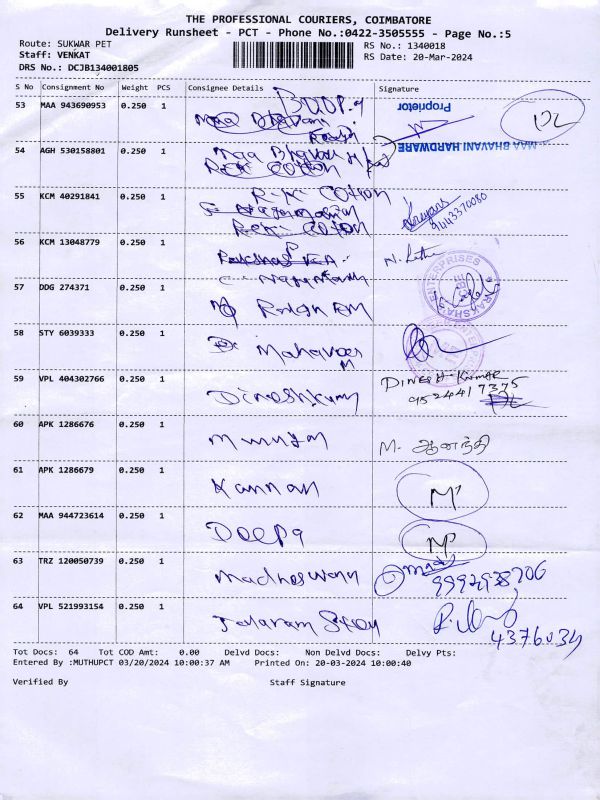 THE PROFESSIONAL COURIERS, COIMBATORE
Delivery Runsheet - PCT - Phone No.:0422-3505555 - Page No.:5
Route: SUKWAR PET
RS No.: 1340018
Staff: VENKAT
RS Date: 20-Mar-2024
DRS No.: DCJB134001805
S No Consignment No Weight PCS Consignee Details Signature
53 MAA 943690953 0.250 1
Proprietor
MAA BHAVANI HARDWARE
54 AGH 530158801 0.250 1 Maa Bhavani H
55 KCM 40291841 0.250 1 R.K. COTTON
9443370080
56 KCM 13048779 0.250 1
57 DDG 274371 0.250 1
RAKSHA ENTERPRISES
58 STY 6039333 0.250 1 Mahaveer
M
59 VPL 404302766 0.250 1 Dineshkumar DINESH KUMAR
9524417375
60 APK 1286676 0.250 1 Murugan M. ஆனந்தி
61 APK 1286679 0.250 1 Kannan M
62 MAA 944723614 0.250 1 Deepa
63 TRZ 120050739 0.250 1 Madheswaran
64 VPL 521993154 0.250 1
4376034
Tot Docs: 64 Tot COD Amt: 0.00 Delvd Docs: Non Delvd Docs: Delvy Pts:
Entered By :MUTHUPCT 03/20/2024 10:00:37 AM Printed On: 20-03-2024 10:00:40
Verified By Staff Signature